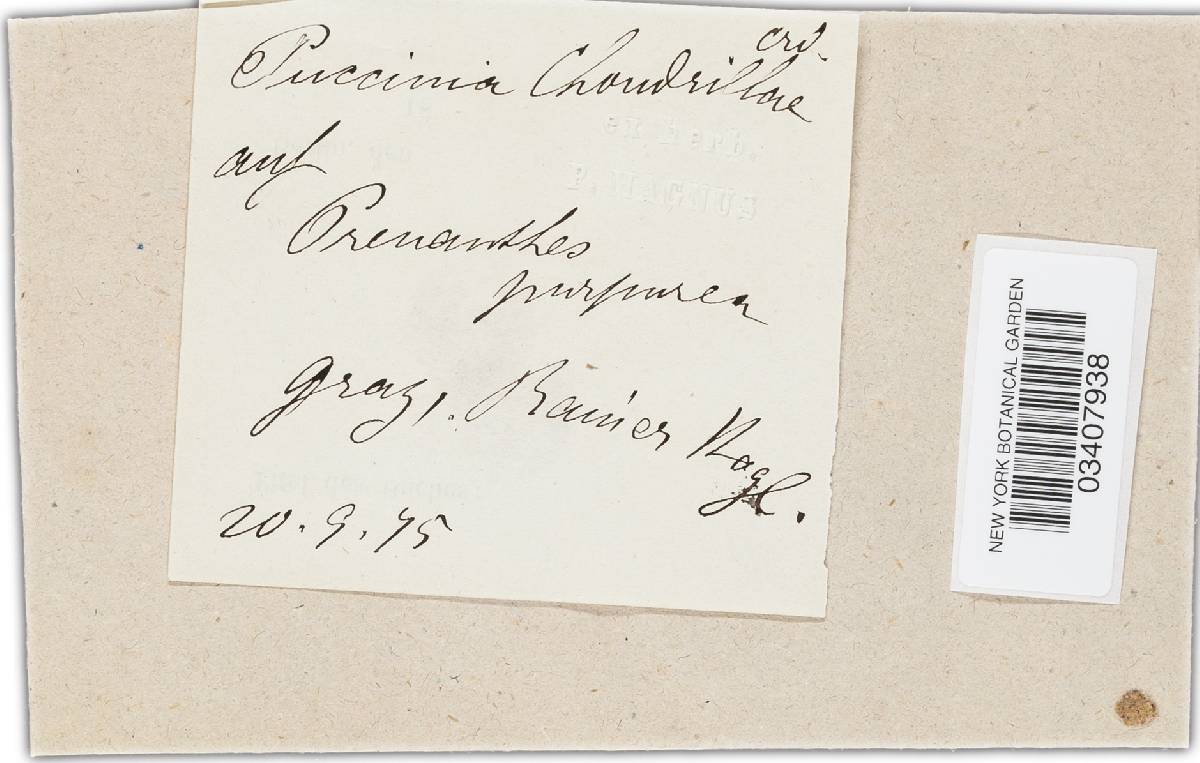 Puccinia Chondrillae
Crd.
auf
Prenanthes
purpurea
Graz, Rainer Kogl.
20.9.75
NEW YORK BOTANICAL GARDEN
03407938